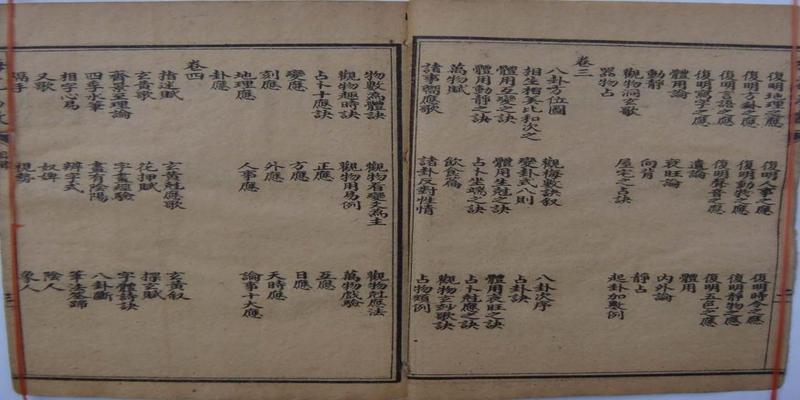 復明地理之應 復明人事之應 復明時令之應
復明方卦之應 復明動物之應 復明靜物之應
復明言語之應 復明聲音之應 復明五色之應
復明寫字之應 遺論 體用
體用論 衰旺論 內外論
動靜 向背 靜占
觀物洞玄歌 屋宅之占訣 起卦加數例
器物占
卷三
八卦方位圖 觀梅數訣叙 八卦次序
相生相尅比和次之 變卦式八則 占卦訣
體用互變之訣 體用生尅之訣 體用衰旺之訣
體用動靜之訣 占卜坐端之訣 占卜尅應之訣
萬物賦 飲食篇 觀物玄妙歌訣
諸事響應歌 諸卦反對性情 占物類例
物數為體訣 觀物看變爻為主 觀物尅應法
觀物趣時訣 觀物用易例 萬物戲驗
占卜十應訣 正應 互應
變應 方應 日應
刻應 外應 天時應
地理應 人事應 論事十大應
卦應
卷四
指迷賦 玄黃尅應歌 玄黃叙
玄黃歌 花押賦 探玄賦
齊景至理論 字畫經驗 字體詩訣
四季水筆 畫有陰陽 八卦斷
相字心易 辨字式 筆法筌蹄
又歌 奴婢 陰人
象人